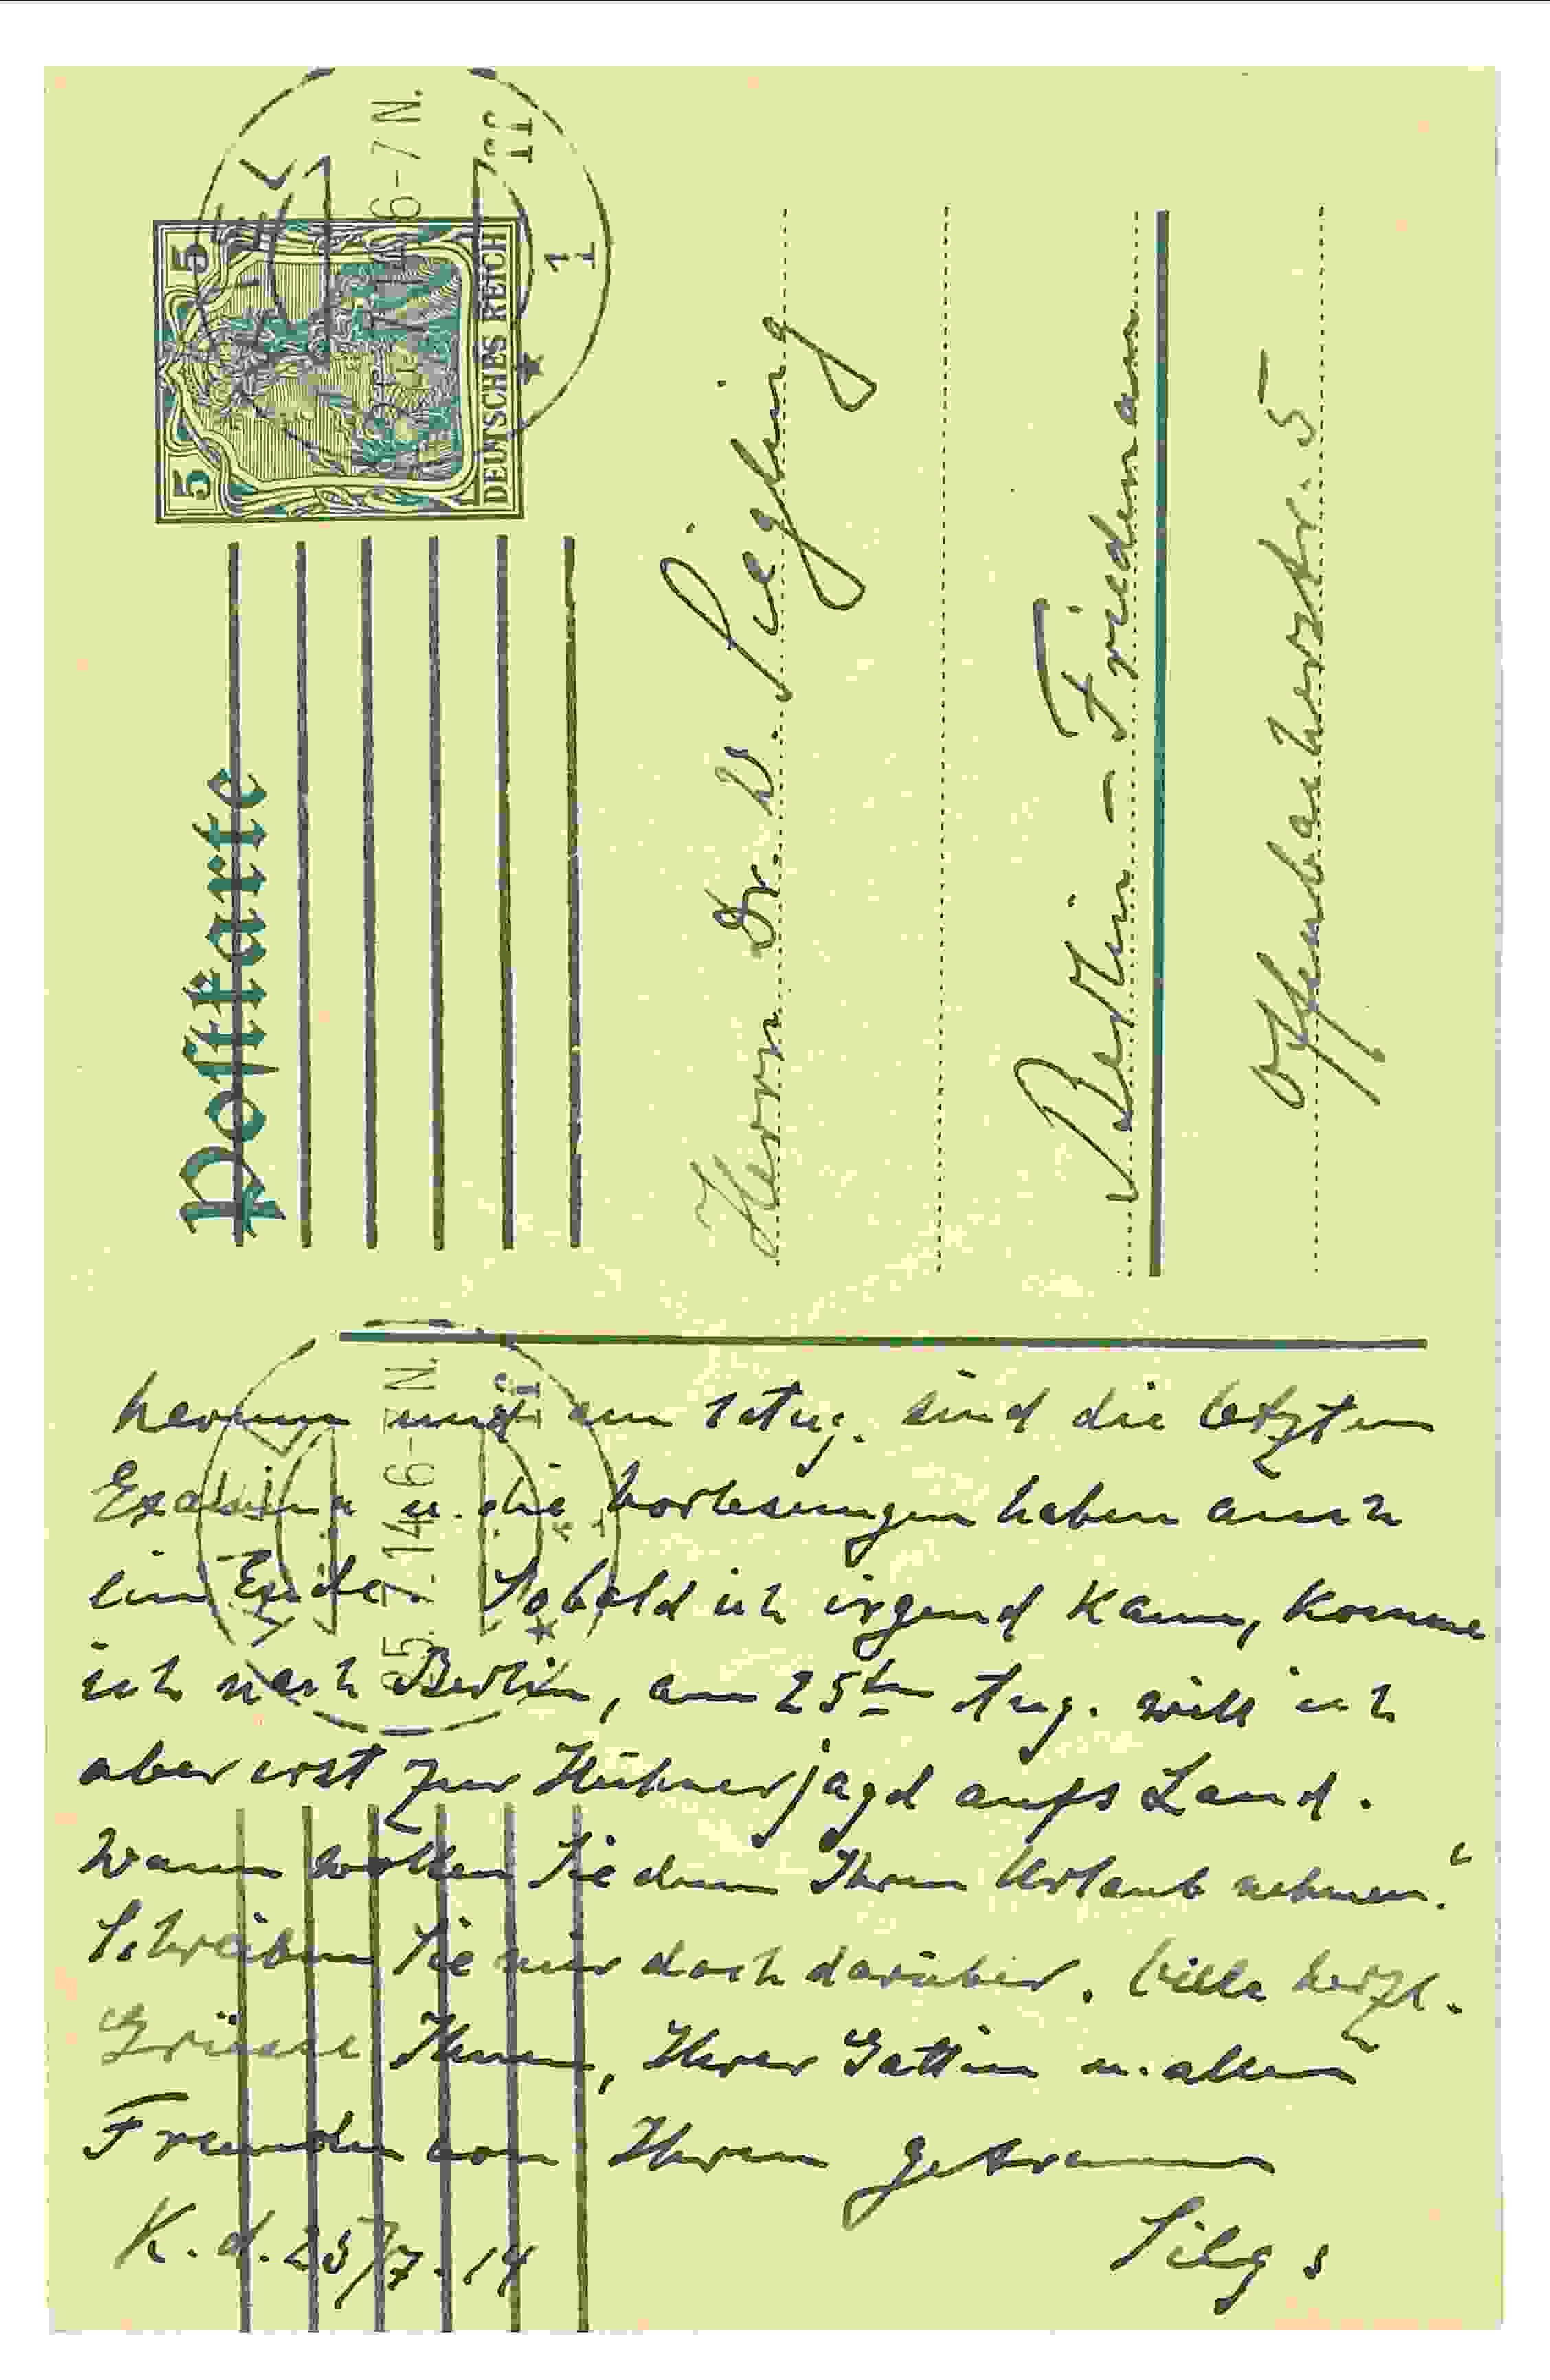 Postkarte
5 5
DEUTSCHES REICH
KIEL
25.7.14.6-7N.
1
Herrn Dr. W. Siegling
Berlin - Friedenau
Offenbacherstr. 5
herum und am 1 Aug. sind die letzten
Examina u. die Vorlesungen haben auch
ein Ende. Sobald ich irgend kann, komme
ich nach Berlin, am 25ten Aug. will ich
aber erst zur Hühnerjagd aufs Land.
Wann wollen Sie denn Ihren Urlaub nehmen?
Schreiben Sie mir doch darüber. Viele herzl.
Grüsse Ihnen, Ihrer Gattin u. allen
Freunden von Ihrem getreuen
K. d. 25/7. 14